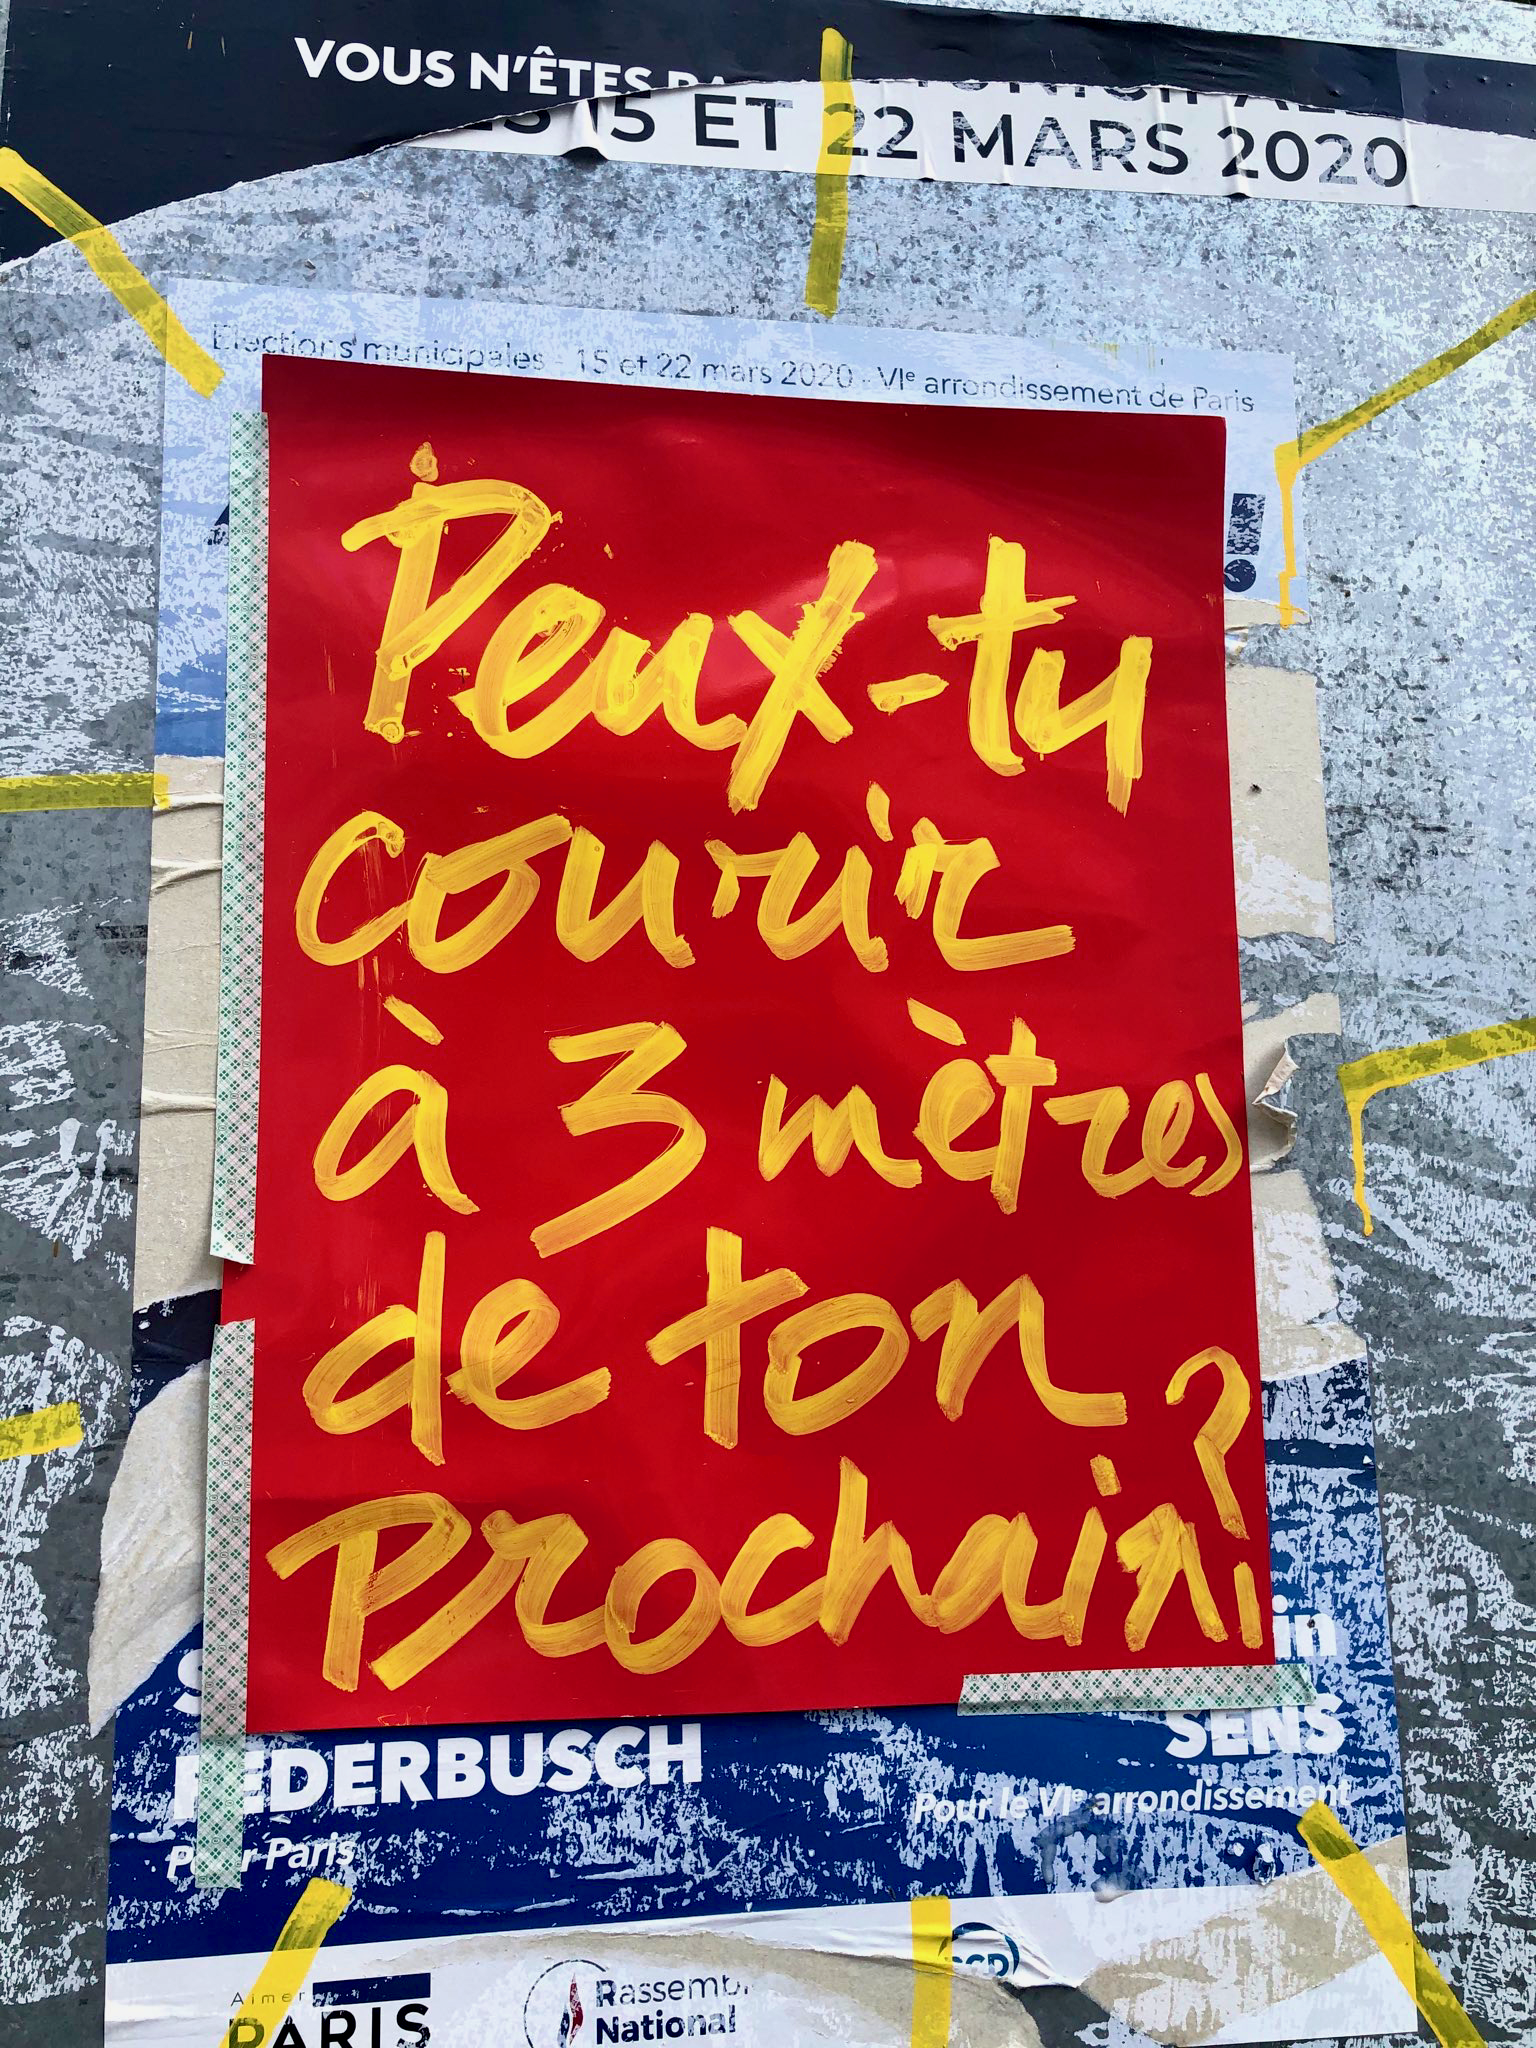 VOUS N'ÊTES
15 ET 22 MARS 2020
Elections municipales - 15 et 22 mars 2020 - VIe arrondissement de Paris
!
Peux-tu
courir
à 3 mètres
de ton
Prochain?
in
FEDERBUSCH
SENS
Pour Paris
Pour le VIe arrondissement
Aimer
PARIS
Rassemb
National